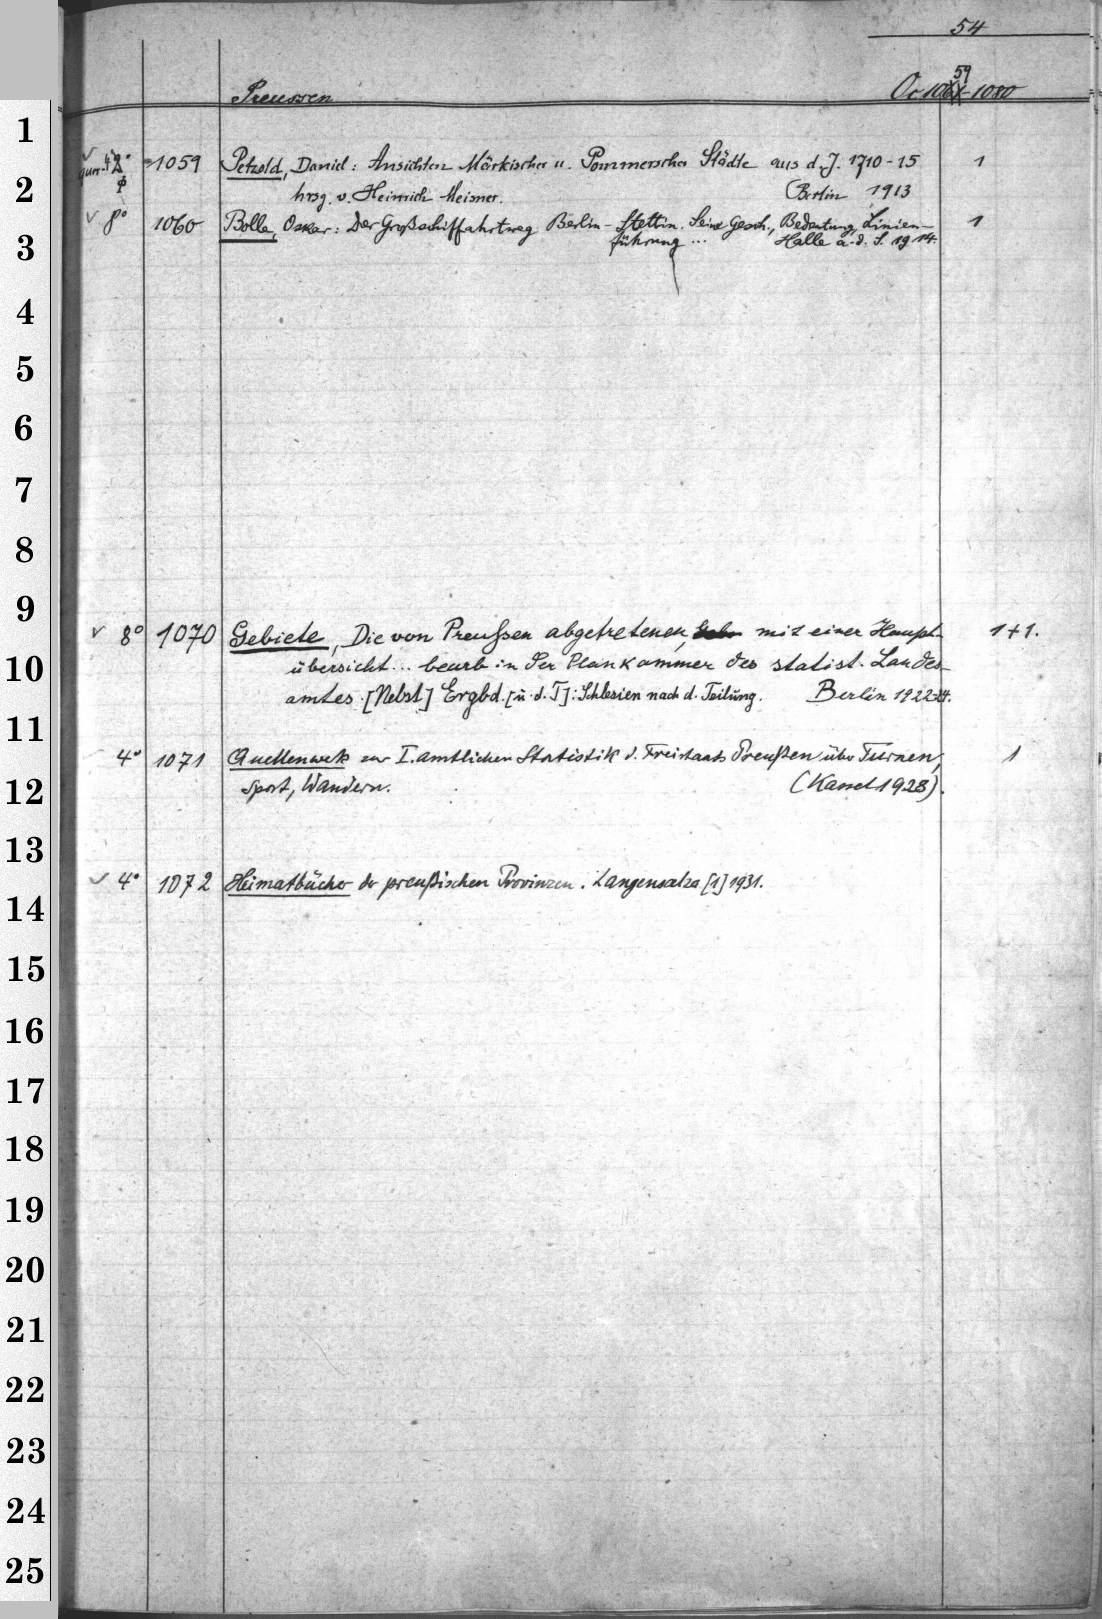 54
Preussen
Oc 1059-1080
1
2
3
4
5
6
7
8
9
10
11
12
13
14
15
16
17
18
19
20
21
22
23
24
25
2° 1059 Petzold, Daniel: Ansichten Märkischer u. Pommerscher Städte aus d. J. 1710-15 1
hrsg. v. Heinrich Meisner. Berlin 1913
8° 1060 Bolle, Oskar: Der Großschiffahrtweg Berlin-Stettin. Seine Gesch., Bedeutung, Linien- 1
führung ... Halle a. d. S. 1914.
8° 1070 Gebiete, Die von Preußen abgetretenen, mit einer Haupt- 1+1.
übersicht... bearb in der Plankammer des statist. Landes-
amtes. [Nebst] Ergbd. [u. d. T]: Schlesien nach d. Teilung. Berlin 1922-24.
4° 1071 Quellenwerk zur I. amtlichen Statistik d. Freistaats Preußen über Turnen, 1
Sport, Wandern. (Kassel 1928).
4° 1072 Heimatbücher der preußischen Provinzen. Langensalza [1] 1931.